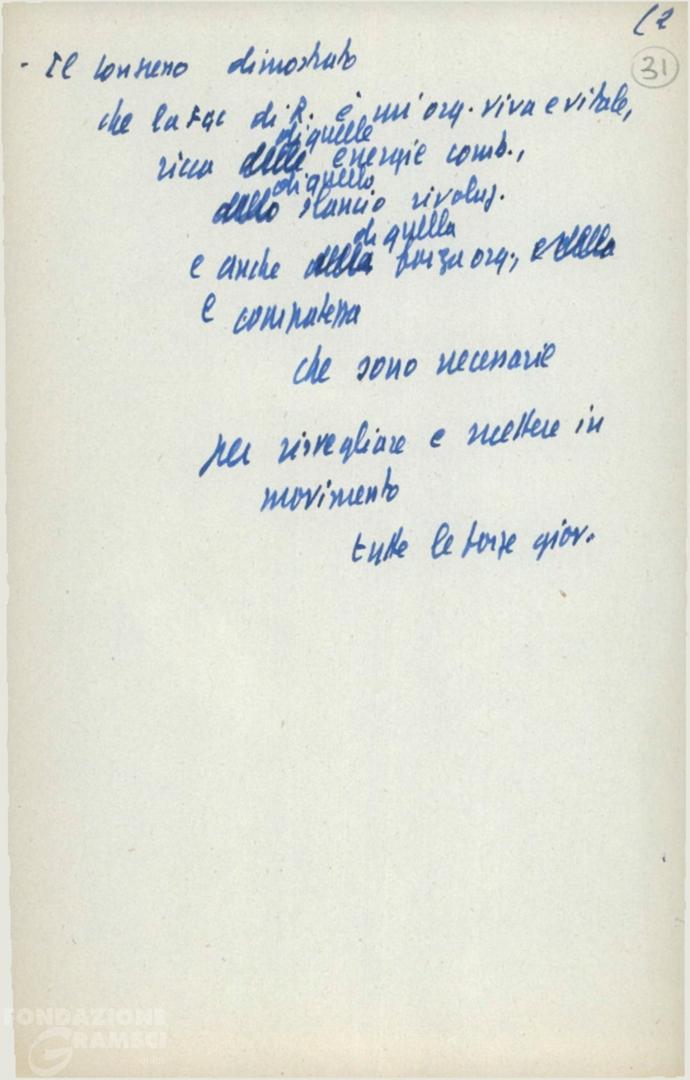 (2
31
- Il congresso dimostrato
che la FGC di R. è un'org. viva e vitale,
di quelle
ricca delle energie comb.,
di quello
dello slancio rivoluz.
di quella
e anche della forza org., e della
e compattezza
che sono necessarie
per risvegliare e mettere in
movimento
tutte le forze giov.
FONDAZIONE
GRAMSCI